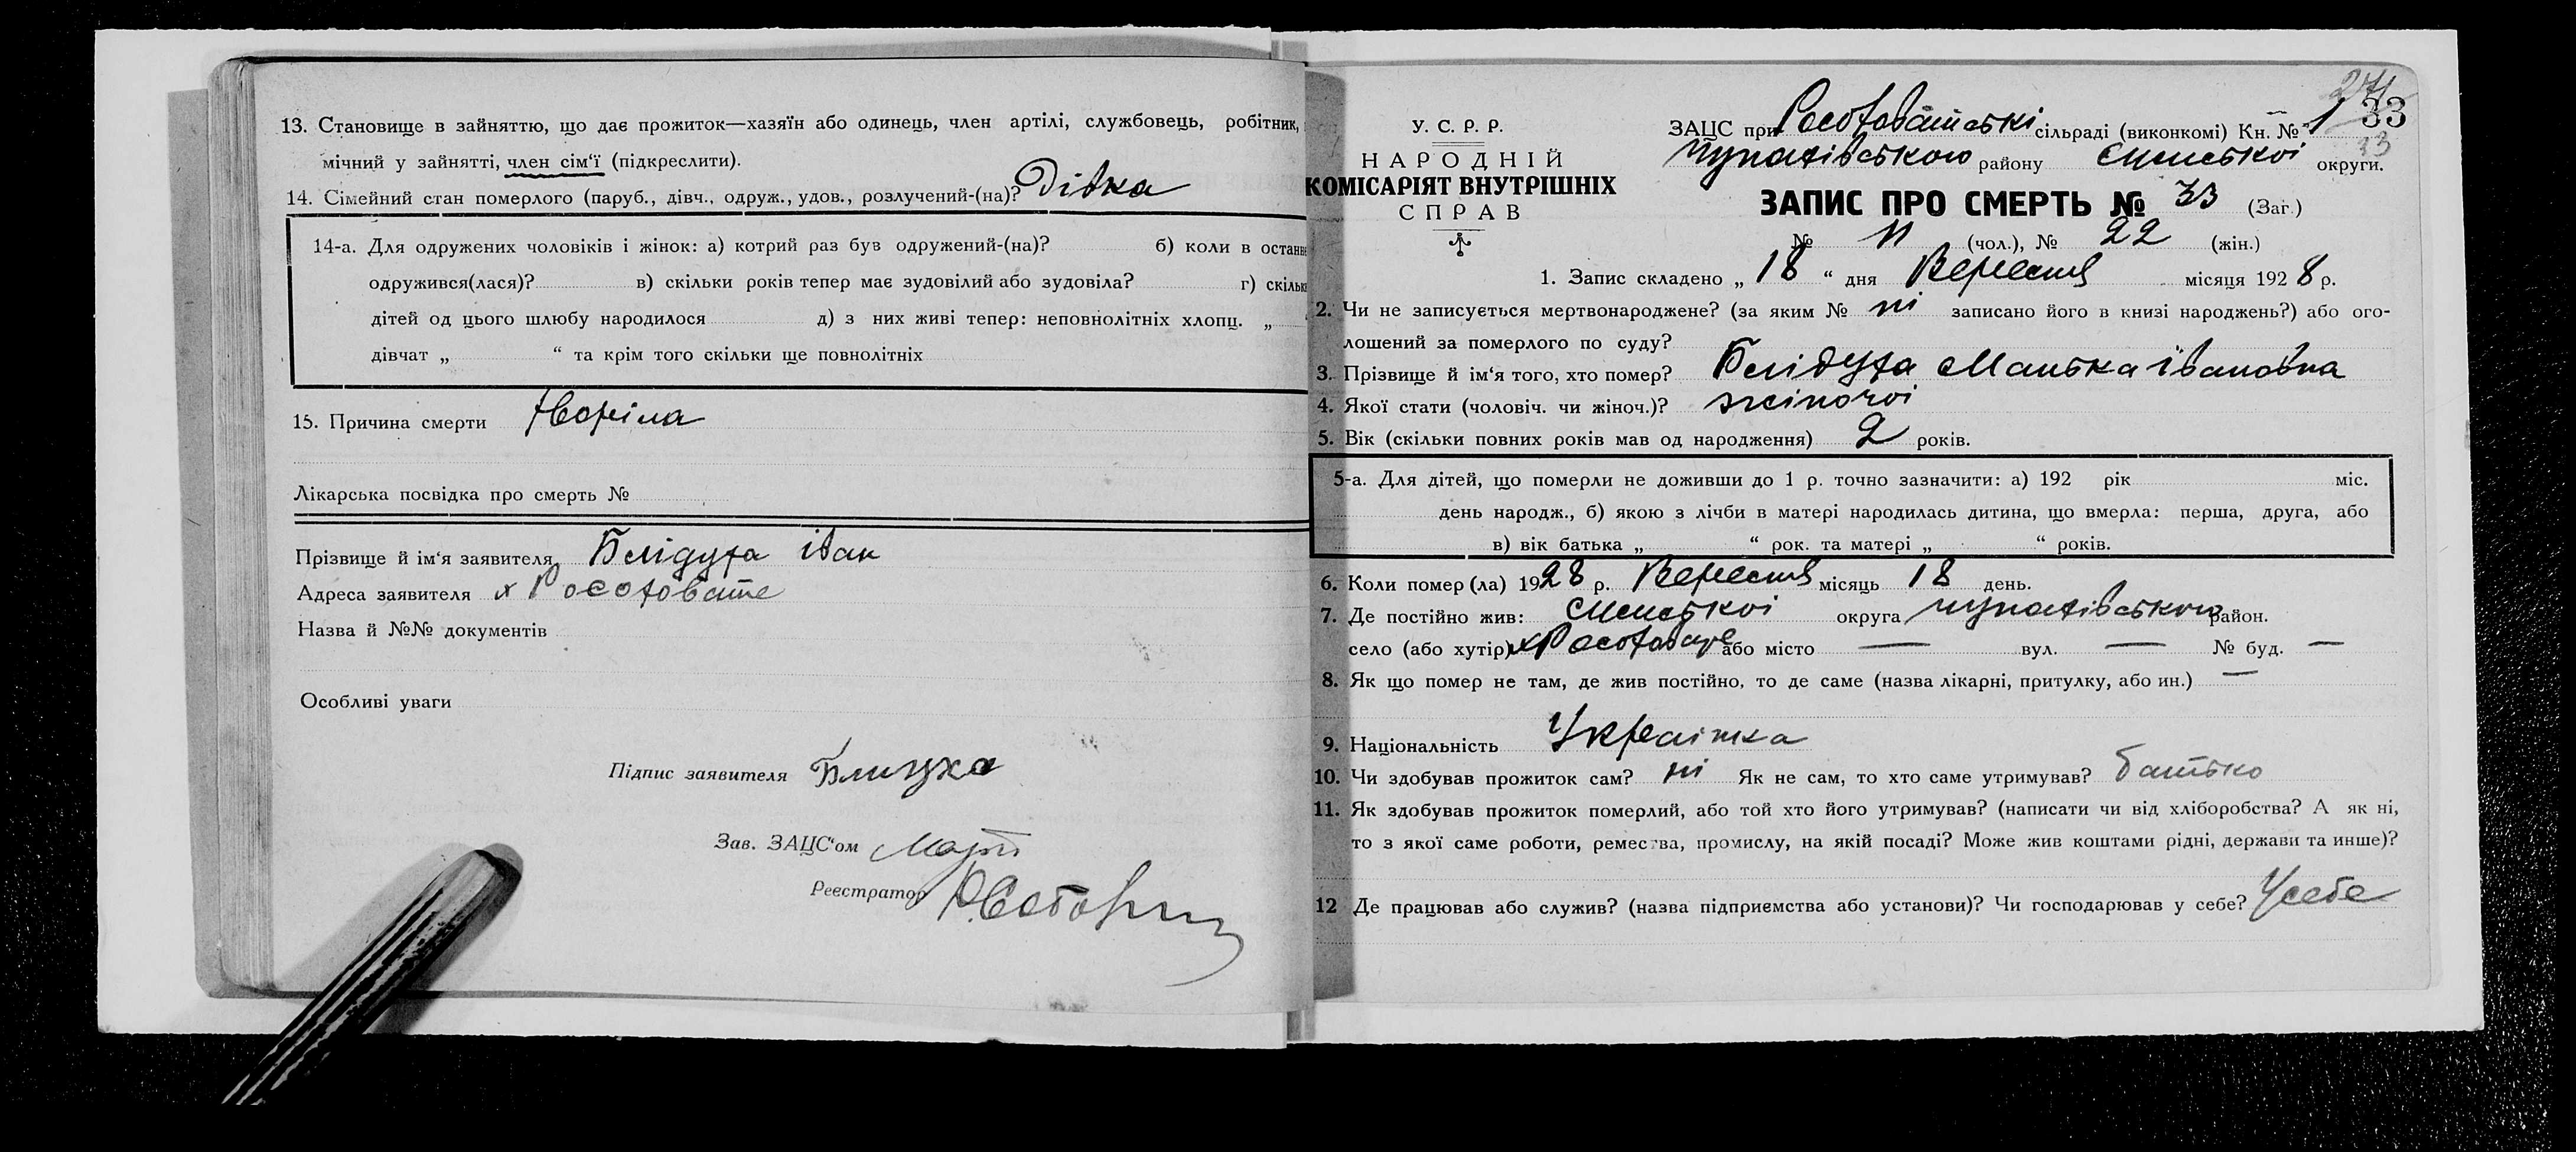 13. Становище в зайняттю, що дає прожиток—хазяїн або одинець, член артілі, службовець, робітник,
мічний у зайнятті, член сім‘ї (підкреслити).
14. Сімейний стан померлого (паруб., дівч., одруж., удов., розлучений-(на)? Дівка
14-а. Для одружених чоловіків і жінок: а) котрий раз був одружений-(на)? б) коли в останн
одружився(лася)? в) скільки років тепер має зудовілий або зудовіла? г) скільк
дітей од цього шлюбу народилося д) з них живі тепер: неповнолітніх хлопц. „
дівчат „ “ та крім того скільки ще повнолітніх
15. Причина смерти хворіла
Лікарська посвідка про смерть №
Прізвище й ім‘я заявителя Блідуха іван
Адреса заявителя х Росоховате
Назва й №№ документів
Особливі уваги
Підпис заявителя
Зав. ЗАЦС‘ом
Реєстратор
33
У. С. Р. Р.
НАРОДНІЙ
КОМІСАРІЯТ ВНУТРІШНІХ
СПРАВ
ЗАЦС при Росоховатські сільраді (виконкомі) Кн. № 1
району округи.
ЗАПИС ПРО СМЕРТЬ № 33 (Заг.)
№ 11 (чол.), № 22 (жін.)
1. Запис складено „ 18 “ дня Вересня місяця 1928 р.
2. Чи не записується мертвонароджене? (за яким № ні записано його в книзі народжень?) або ого-
лошений за померлого по суду?
3. Прізвище й ім‘я того, хто помер? Блідуха Манька івановна
4. Якої стати (чоловіч. чи жіноч.)? жіночоі
5. Вік (скільки повних років мав од народження) 2 років.
5-а. Для дітей, що померли не доживши до 1 р. точно зазначити: а) 192 рік міс.
день народж., б) якою з лічби в матері народилась дитина, що вмерла: перша, друга, або
в) вік батька „ “ рок. та матері „ “ років.
6. Коли помер (ла) 1928 р. Вересня місяць 18 день.
7. Де постійно жив: округа район.
село (або хутір) х Росоховате або місто — вул. — № буд. —
8. Як що помер не там, де жив постійно, то де саме (назва лікарні, притулку, або ин.) —
9. Національність Украінка
10. Чи здобував прожиток сам? ні Як не сам, то хто саме утримував? батько
11. Як здобував прожиток померлий, або той хто його утримував? (написати чи від хліборобства? А як ні,
то з якої саме роботи, ремества, промислу, на якій посаді? Може жив коштами рідні, держави та инше)?
12 Де працював або служив? (назва підприємства або установи)? Чи господарював у себе? Усебе